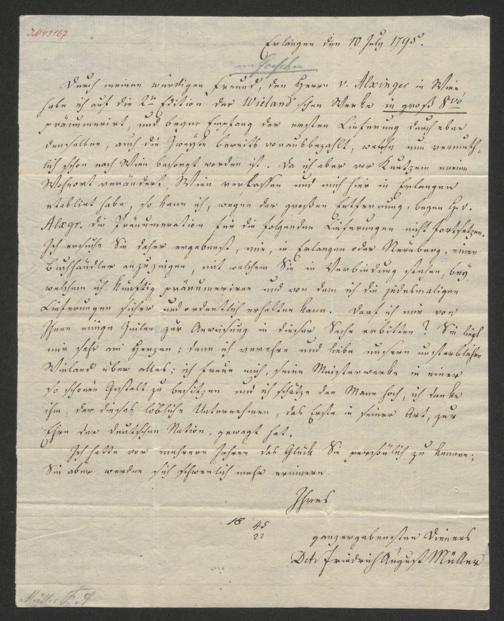 I.N. 43167
Erlangen den 10 July 1795.
an Goschen
Durch meinen würdigen Freund, den Herrn v. Alxinger in Wien
habe ich auf die 2te Edition der Wieland'schen Werke in groß 8vo
pränumerirt, und beym Empfang der ersten Lieferung durch eben
denselben, auch die zweyte bereits vorausbezahlt, welche nun vermuth-
lich schon nach Wien besorgt worden ist. Da ich aber vor Kurtzem meinen
Wohnort verändert, Wien verlassen und mich hier in Erlangen
etablirt habe, so kann ich, wegen der großen Entfernung, beym Hr. v.
Alxgr. die Pränumeration für die folgenden Lieferungen nicht fortsetzen.
Ich ersuche Sie daher ergebenst, mir, in Erlangen oder Nürnberg, einen
Buchhändler anzuzeigen, mit welchem Sie in Verbindung stehen, bey
welchem ich künftig pränumeriren und von dem ich die jedesmaligen
Lieferungen sicher und ordentlich erhalten kann. Darf ich mir von
Ihnen einige Zeilen zur Anweisung in dieser Sache erbitten? Sie liegt
mir sehr am Herzen; denn ich verehre und liebe unsern unsterblichen
Wieland über alles; ich freue mich, seine Meisterwerke in einer
so schönen Gestalt zu besitzen und ich schätze den Mann hoch, ich danke
ihm, der dieses löbliche Unternehmen, das Erste in seiner Art, zur
Ehre der deutschen Nation, gewagt hat.
Ich hatte vor mehrern Jahren das Glück Sie persönlich zu kennen;
Sie aber werden sich schwerlich mehr erinnern
Ihres
18 45
22
ganzergebensten Dieners
Friedrich August Müller
Müller F. A